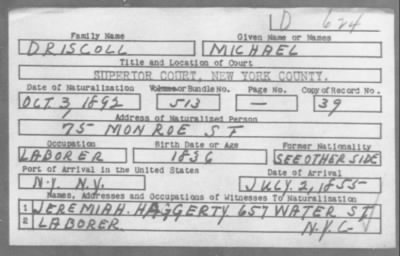 D 624
Family Name Given Name or Names
DRISCOLL MICHAEL
Title and Location of Court
SUPERIOR COURT, NEW YORK COUNTY.
Date of Naturalization Volume or Bundle No. Page No. Copy of Record No.
OCT. 3, 1892 513 — 39
Address of Naturalized Person
75 MONROE ST
Occupation Birth Date or Age Former Nationality
LABORER 1836 SEE OTHER SIDE
Port of Arrival in the United States Date of Arrival
N.Y. N.Y. JULY. 2, 1855
Names, Addresses and Occupations of Witnesses To Naturalization
1 JEREMIAH. HAGGERTY 657 WATER ST
2 LABORER N.Y.C